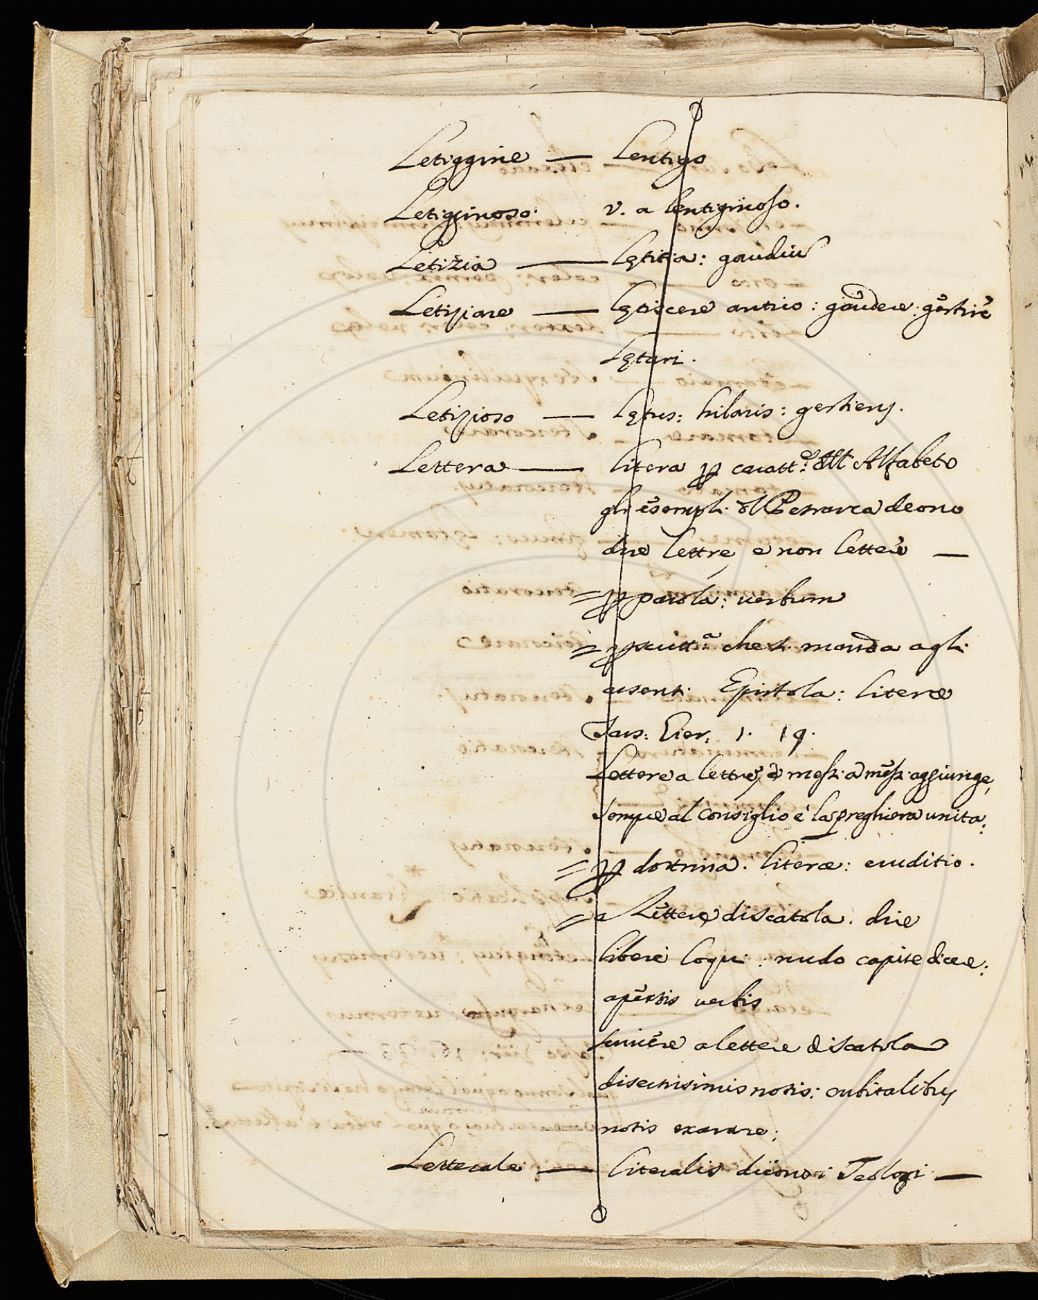 Letiggine — Lentigo
Letigginoso. v. a lentiginoso.
Letizia — Lętitia: gaudiū
Letiziare — Lętiscere antico: gaudere: gestire
Lętari.
Letizioso — lętus: hilaris: gestiens.
Lettera — litera p caratt.e dell Alfabeto
gli esempli del Petrarca deono
dire lettre, e non lettere —
= p parola: verbum
= p scritt.a che si manda agli
asenti. Epistola: literæ
Tass. Gier. 1. 19.
Lettere a lettre, e messi a messi aggiunge,
sempre al consiglio è la preghiera unita:
= p dottrina. literæ: eruditio.
= a Lettere di scatola. dire
libere loqui: nudo capite dicere:
apertis verbis
scrivere a lettere di scatola
notis: cubitalibus
notis exarare;
Letterale — literalis dicono i Teologi —